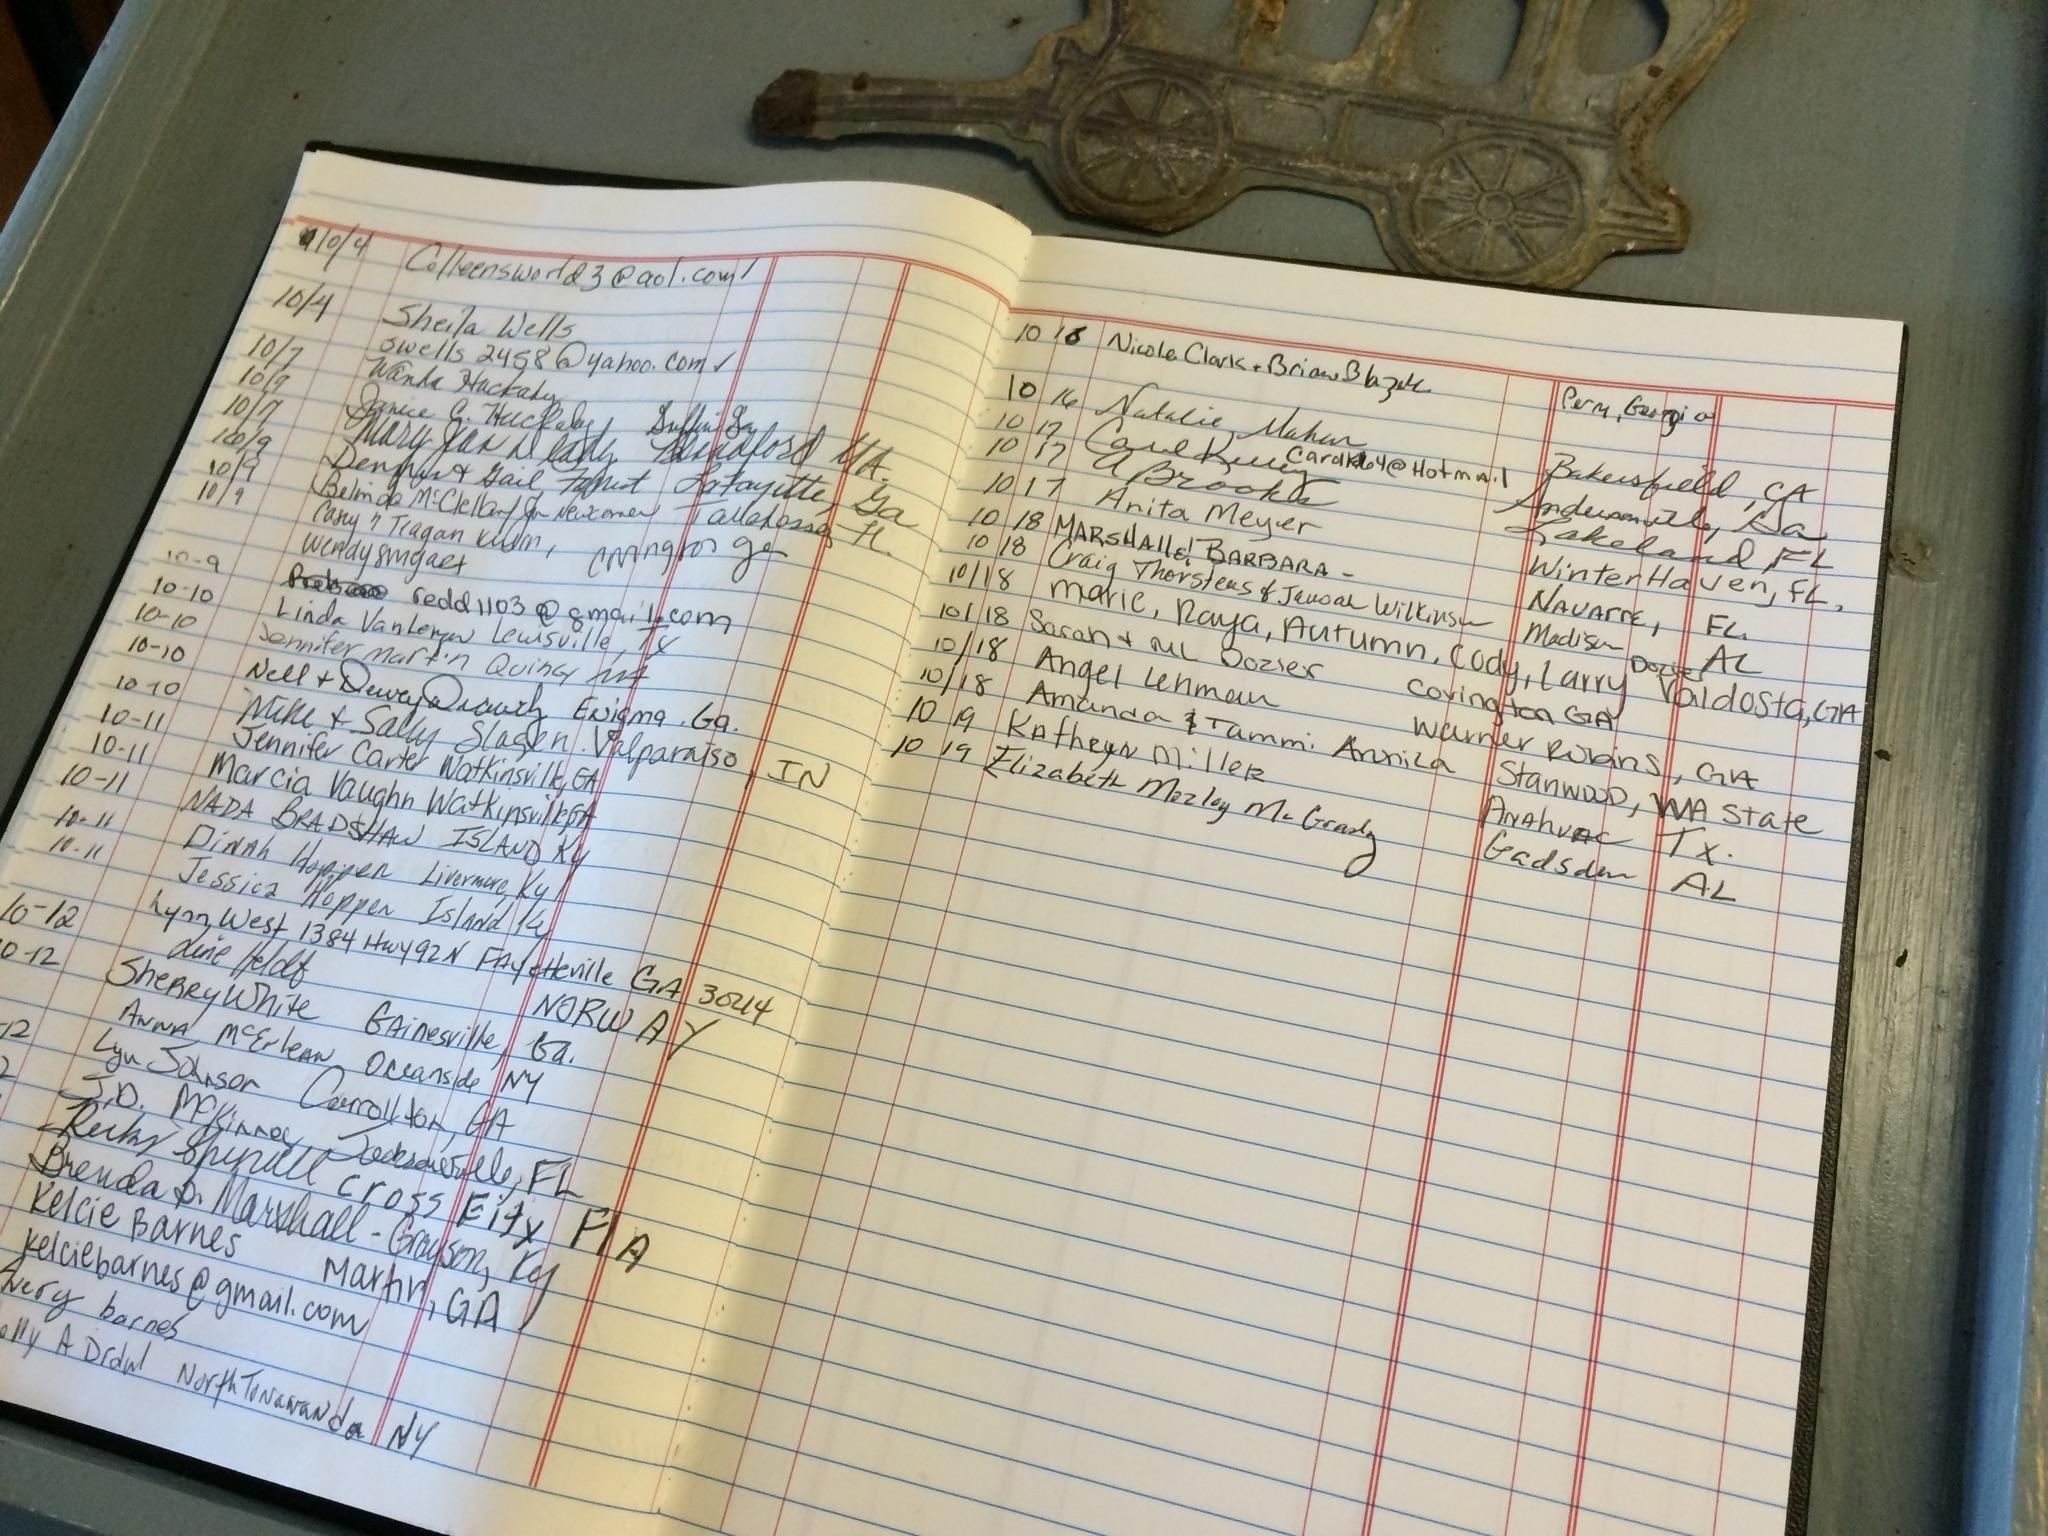 10/4 Colleensworld3@aol.com
10/4 Sheila Wells
swells2458@yahoo.com
10/7 Wanda Huckaby
10/9 Janice C. Huckaby Griffin Ga
10/7 Mary Jan
10/9 Dennis & Gail Lafayette, Ga
10/9 Belinda McClelland Tallahassee Fl.
10/9 Casey n Teagan
wendysmgaet
10-9 redd1103@gmail.com
10-10 Linda Lewisville, TX
10-10 Jennifer Martin Quincy
10-10 Nell & Dewey Enigma. Ga.
10-10 Mike & Sally Slagen. Valparaiso, IN
10-11 Jennifer Carter Watkinsville, GA
10-11 Marcia Vaughn Watkinsville GA
10-11 NADA BRADSHAW ISLAND KY
10-11 Dinah Hoppen Livermore, Ky
10-11 Jessica Hoppen Island Ky
Lynn West 1384 Hwy 92N FAYetteville GA 30214
10-12 Line Heldt NORWAY
10-12 SHERRY White GAinesville, Ga.
ANNA McErlean Oceanside NY
12 Lyn Johnson Carrollton, GA
J.D. McKinney Jacksonville, FL
Cross City FlA
Brenda D. Marshall - Grayson, Ky
Kelcie Barnes Martin, GA
kelciebarnes@gmail.com
Avery barnes
North Tonawanda NY
10 16 Nicole Clark + Brian Blazek Perry, Georgia
10 16 Natalie Mahan Bakersfield, CA
10 17 Carol cardk64@Hotmail Andersonville, Ga
10 17 A Brooks Lakeland FL
10 17 Anita Meyer Winter Haven, FL.
10 18 MARSHALL & BARBARA - NAVARRE, FL.
10 18 Craig Thorstens & Wilkinson Madison AL
10/18 Marie, Raya, Autumn, Cody, Larry Dozier Valdosta, GA
10/18 Sarah & ML Dozier Covington GA
10/18 Angel Lehman Warner Robins, GA
10/18 Amanda & Tammi Stanwood, WA State
10 19 Kathryn Miller Anahuac Tx.
10 19 Elizabeth Mozley McGrady Gadsden AL